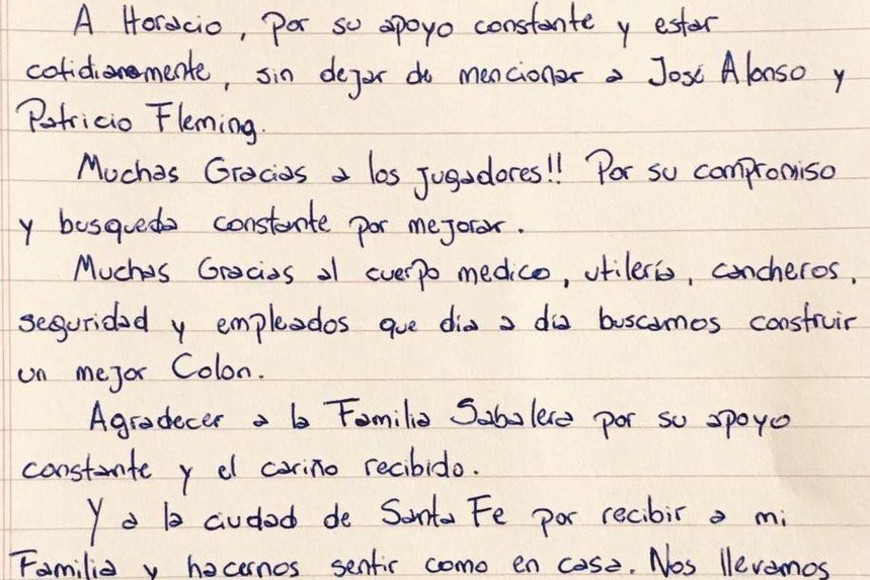 A Horacio, por su apoyo constante y estar
cotidianamente, sin dejar de mencionar a José Alonso y
Patricio Fleming.
Muchas Gracias a los jugadores!! Por su compromiso
y busqueda constante por mejorar.
Muchas Gracias al cuerpo medico, utilería, cancheros,
seguridad y empleados que dia a dia buscamos construir
un mejor Colon.
Agradecer a la Familia Sabalera por su apoyo
constante y el cariño recibido.
Y a la ciudad de Santa Fe por recibir a mi
Familia y hacernos sentir como en casa. Nos llevamos